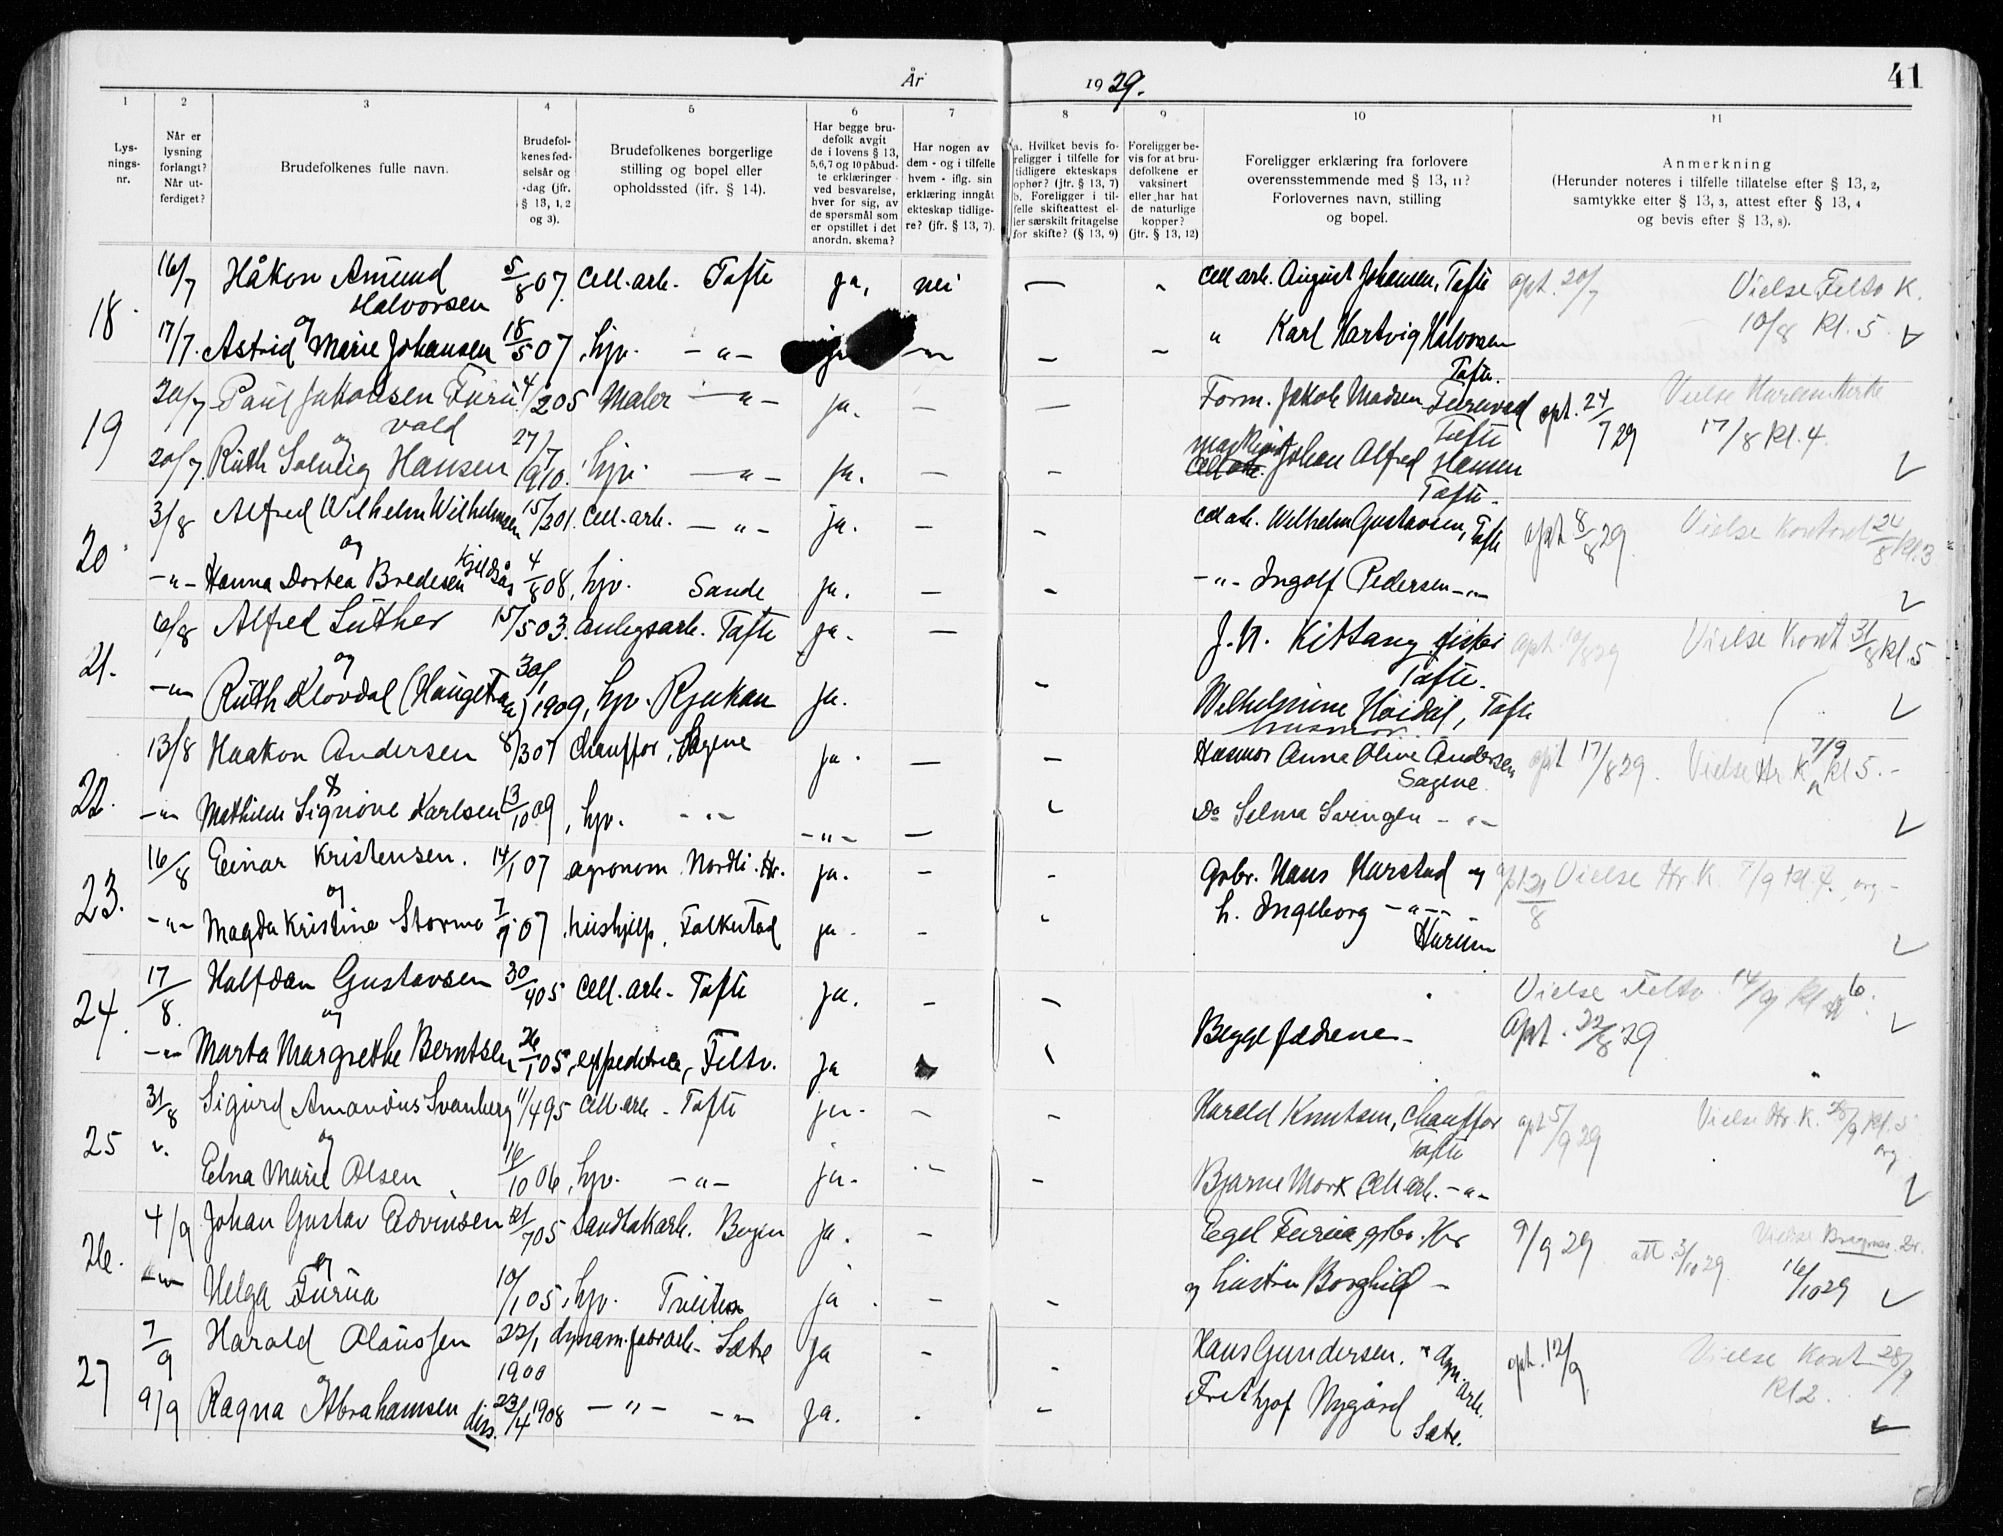 År 1929.
41
1 2 3 4 5 6 7 8 9 10 11
Lys-
nings-
nr.
Når er
lysning
forlangt?
Når ut-
ferdiget?
Brudefolkenes fulle navn.
Brudefol-
kenes fød-
selsår og
-dag (jfr.
§ 13, 1, 2
og 3).
Brudefolkenes borgerlige
stilling og bopel eller
opholdssted (jfr. § 14).
Har begge bru-
defolk avgit
de i lovens § 13,
5,6,7 og 10 påbud-
te erklæringer
ved besvarelse,
hver for sig, av
de spørsmål som
er opstillet i det
anordn. skema?
Har nogen av
dem - og i tilfelle
hvem - iflg. sin
erklæring inngått
ekteskap tidlige-
re? (jfr. § 13, 7).
a. Hvilket bevis fo-
religger i tilfelle for
tidligere ekteskaps
ophør? (jfr. § 13, 7)
b. Foreligger i til-
felle skifteattest el-
ler særskilt fritagelse
for skifte? (§ 13, 9)
Foreligger be-
vis for at bru-
defolkene er
vaksinert
eller har hat
de naturlige
kopper?
(jfr. § 13, 12)
Foreligger erklæring fra forlovere
overensstemmende med § 13, 11?
Forlovernes navn, stilling
og bopel.
Anmerkning
(Herunder noteres i tilfelle tillatelse efter § 13, 2,
samtykke efter § 13, 3, attest efter § 13, 4
og bevis efter § 13, 8).
18. 16/7 Håkon Amund Halvorsen 5/8 07. Cell.arb. Tofte ja, nei — - Cell arb. August Johansen, Tofte opt. 20/7 Vielse Filtv K.
og 10/8 kl. 5
17/7. Astrid Marie Johansen 18/5 07, hjv. -"- ja -"- — - " Karl Hartvig Halvorsen Tofte.
19 20/7 Paul Jakobsen Furuvald 4/2 05 Maler -"- ja. — — Form. Jakob Madsen Furuvald Tofte opt. 24/7 29 Vielse Hurum kirke
og 17/8 kl. 4.
20/7. Ruth Solveig Hansen 27/9 10. hjv. -"- ja. — - maskinist Johan Alfred Hansen Tofte.
20 3/8 Alfred Wilhelm Wilhelmsen 15/2 01. Cell.arb. -"- ja. - - Cell arb. Wilhelm Gustavsen, Tofte opt 8/8 29. Vielse Kontoret 24/8 kl. 3
og
-"- Hanna Dortea Bredesen Kjeldsås 4/8 08, hjv. Sande ja. - - -"- Ingolf Pedersen -"-
21. 6/8 Alfred Luther 15/5 03. anlegsarb. Tofte ja. — J. N. Kittang, fisker Tofte. opt. 10/8 29 Vielse Kont 31/8 kl. 5
og
-"- Ruth Klovdal (Haugetraa) 30/1 1909, hjv. Rjukan ja. - Wilhelmine Høidal, Tofte
husmor
22. 13/8 Haakon Andersen 8/3 07 Chauffør, Sagene ja. — - Husmor Anna Olive Andersen Sagene opt 17/8 29. Vielse Hr. K 7/9 kl 5.-
&
-"- Mathilde Signove Karlsen 13/10 09, hjv. -"- -"- — Do Selma Svingen -"-
23. 16/8 Einar Kristensen. 14/1 07 agronom Nordli. Hr. ja. - - Gbr. Hans Harstad og opt 21/8 Vielse Hr. K. 7/9 kl. 4. org-
og
-"- Magda Kristine Stormo 7/9 07 hushjelp, Folkestad ja. - h. Ingeborg -"- Hurum
24. 17/8. Halfdan Gustavsen 30/4 05 Cell.arb. Tofte ja. - - Vielse Filtv. 14/9 kl 6.
og
-"- Marta Margrethe Berntsen 26/1 05, expeditrice, Filtv. ja Begge fædrene- Opt. 22/8 29
25 31/8 Sigurd Amandus Svanberg 11/4 95 Cell.arb. Tofte ja. - - Harald Knutsen, Chauffør Tofte opt 5/9 29 Vielse Hr. K. 28/9 kl. 5 org.
og
". Edna Marie Olsen 16/10 06, hjv. -"- ja. - - Bjarne Mork Cell arb. -"-
26. 4/9 Johan Gustav Edvinsen 21/7 05 Sandtakarb. Bergen ja. - Egel Furua gbr. Hr 9/9 29 att 3/10 29 Vielse Bragnes. Dr.
og 16/10 29
-"- Helga Furua 10/1 05, hjv. Tveiten ja. - - og hustru Borghild -
27 7/9 Harald Olaussen 22/1 1900 dynam.fabr.arb. Sætre ja - - Hans Gundersen. dyn. arb. opt. 12/9 Vielse Kont 28/9
og kl 2.
9/9 Ragna Abrahamsen diss. 23/4 1908 -"- -"- ja. - Frithjof Nygård Sætre.